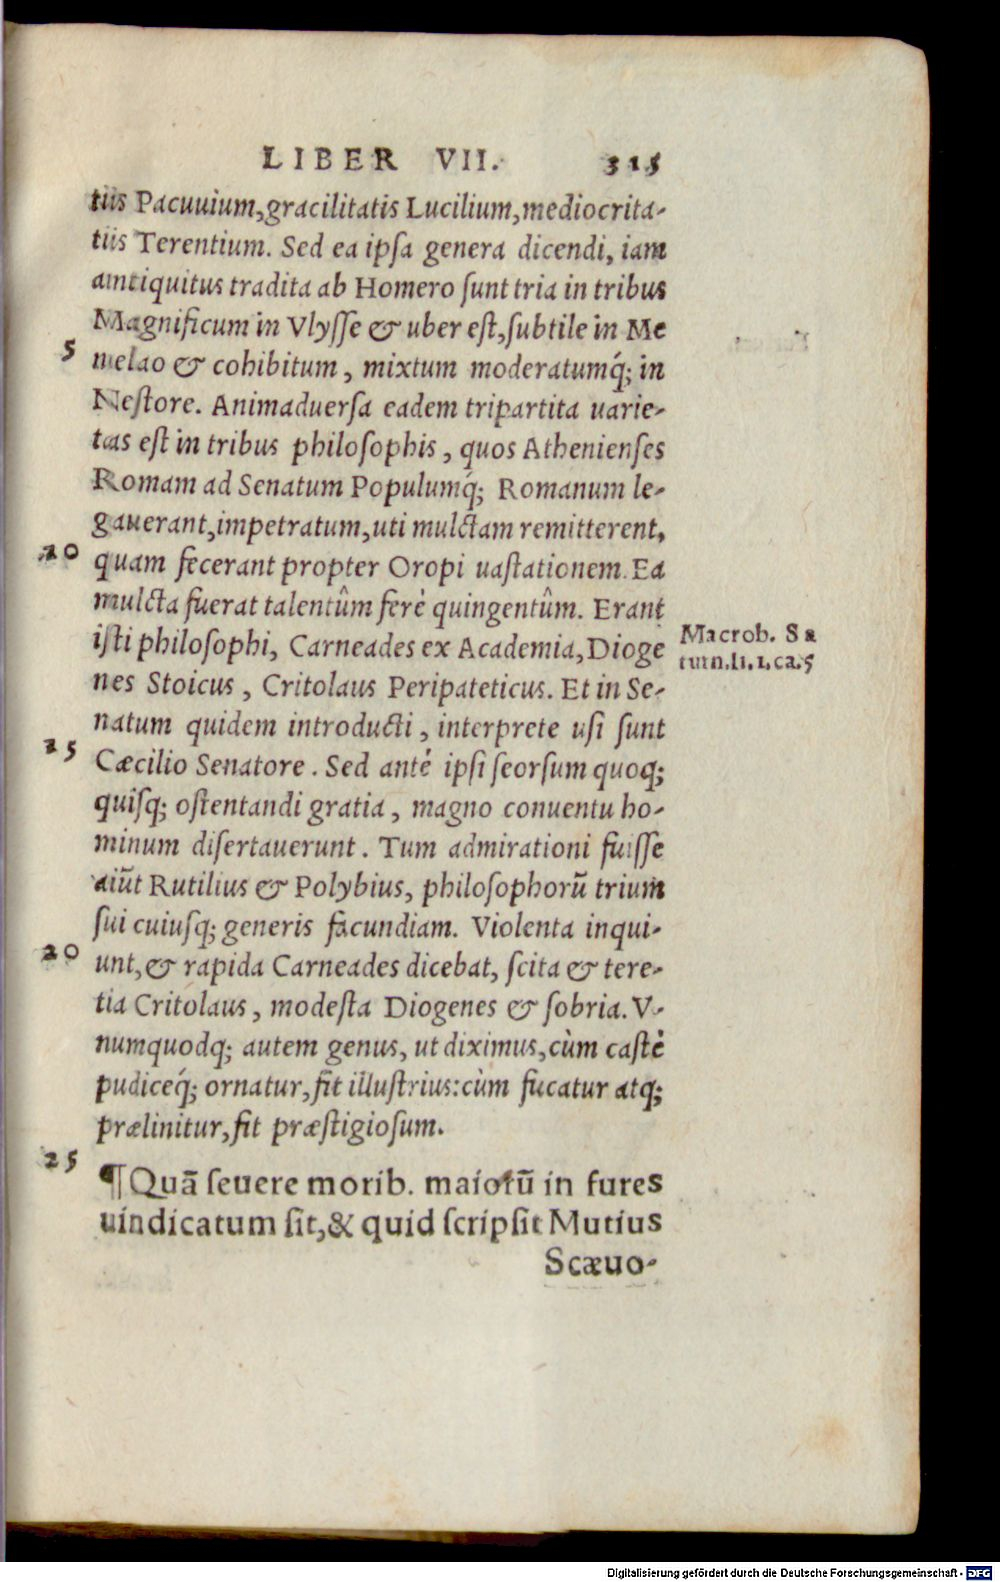 LIBER VII. 315
tiis Pacuuium, gracilitatis Lucilium, mediocrita-
tiis Terentium. Sed ea ipſa genera dicendi, iam
antiquitus tradita ab Homero ſunt tria in tribus
Magnificum in Vlyſſe & uber eſt, ſubtile in Me
5 nelao & cohibitum, mixtum moderatumq́; in
Neſtore. Animaduerſa eadem tripartita uarie-
tas eſt in tribus philoſophis, quos Athenienſes
Romam ad Senatum Populumq́; Romanum le-
gauerant, impetratum, uti mulctam remitterent,
20 quam fecerant propter Oropi uaſtationem. Ea
mulcta fuerat talentûm ferè quingentûm. Erant
iſti philoſophi, Carneades ex Academia, Dioge
Macrob. Sa
turn. li. 1. ca. 5
nes Stoicus, Critolaus Peripateticus. Et in Se-
natum quidem introducti, interprete uſi ſunt
25 Cæcilio Senatore. Sed antè ipſi ſeorſum quoq;
quiſq; oſtentandi gratia, magno conuentu ho-
minum diſertauerunt. Tum admirationi fuiſſe
aiūt Rutilius & Polybius, philoſophorū trium
ſui cuiuſq; generis facundiam. Violenta inqui-
20 unt, & rapida Carneades dicebat, ſcita & tere-
tia Critolaus, modeſta Diogenes & ſobria. V-
numquodq; autem genus, ut diximus, cùm caſtè
pudiceq́; ornatur, fit illuſtrius: cùm fucatur atq;
prælinitur, fit præſtigioſum.
25 ¶ Quā ſeuere morib. maiorū in fures
uindicatum ſit, & quid ſcripſit Mutius
Scæuo-
Digitalisierung gefördert durch die Deutsche Forschungsgemeinschaft - DFG